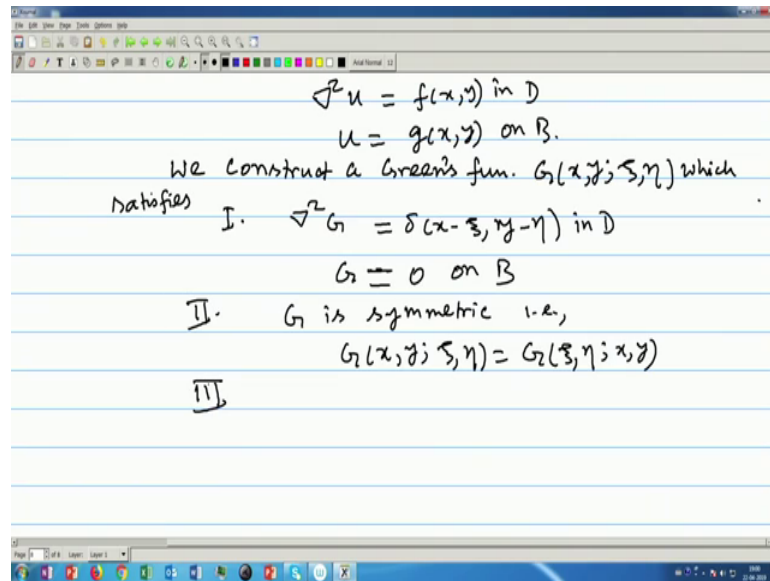 File Edit View Page Tools Options Help
Arial Normal 12
∇²u = f(x,y) in D
u = g(x,y) on B.
We construct a Green's fun. G(x,y; ξ,η) which
satisfies
I. ∇²G = δ(x-ξ, y-η) in D
G = 0 on B
II. G is symmetric i.e.,
G(x,y; ξ,η) = G(ξ,η; x,y)
III.
Page of 8 Layer: Layer 1